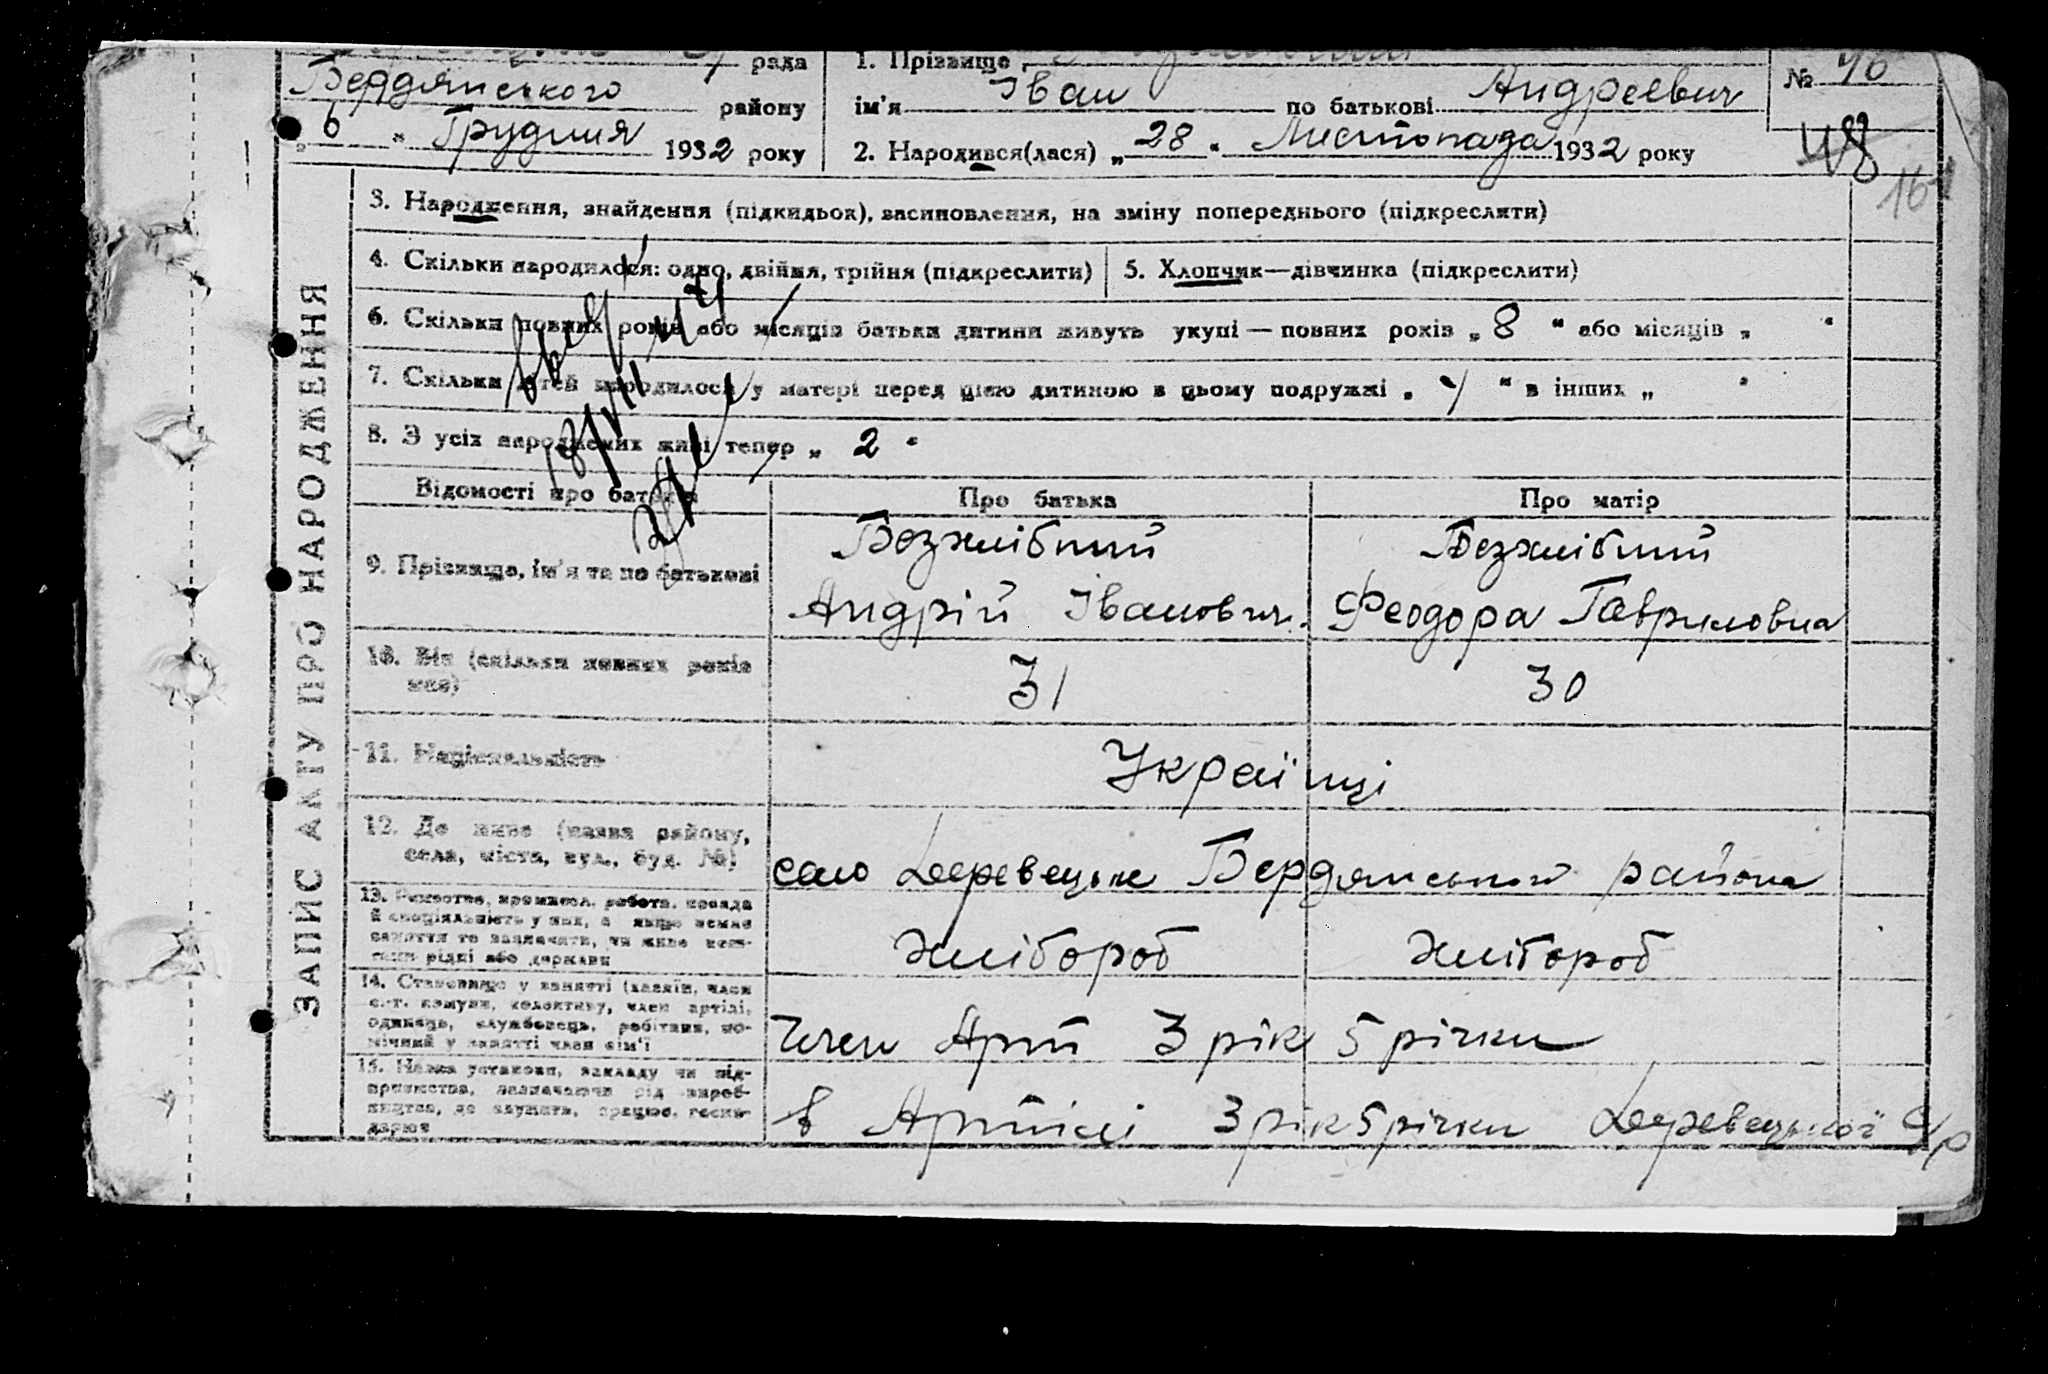 рада 1. Прізвище
Бердянського району ім'я Іван по батькові Андреевич № 46
„ 6 “ Грудня 1932 року 2. Народився(лася) „ 28 “ Листопада 1932 року 48
ЗАПИС АКТУ ПРО НАРОДЖЕННЯ
3. Народження, знайдення (підкидьок), всиновлення, на зміну попереднього (підкреслити)
4. Скільки народилося: одно, двійня, трійня (підкреслити) 5. Хлопчик—дівчинка (підкреслити)
6. Скільки повних років або місяців батьки дитини живуть укупі — повних років „ 8 “ або місяців „ “
7. Скільки дітей народилося у матері перед цією дитиною в цьому подружжі „ “ в інших „ “
8. З усіх народжених живі тепер „ 2 “
Відомості про батьків Про батька Про матір
9. Прізвище, ім'я та по батькові Безхлібний Безхлібний
Андрій Іванович. Феодора Гавриловна
10. Вік (скільки повних років має) 31 30
11. Національність Українці
12. Де живе (назва району,
села, міста, вул., буд. №) село Деревецьке Бердянського района
13. Ремество, промисел, робота, посада
й спеціяльність у них, а якщо немає
заняття то зазначити, чи живе кош-
тами рідні або держави Хлібороб Хлібороб
14. Становище у занятті (хазяїн, член
с.-г. комуни, колективу, член артілі,
одинець, службовець, робітник, по-
мічний у занятті член сім'ї Член Арт 3 рік 5 річки
15. Назва установи, закладу чи під-
приємства, зазначаючи рід вироб-
ництва, де служить, працює, госпо-
дарює в Артілі 3 рік 5 річки Деревецької с/р